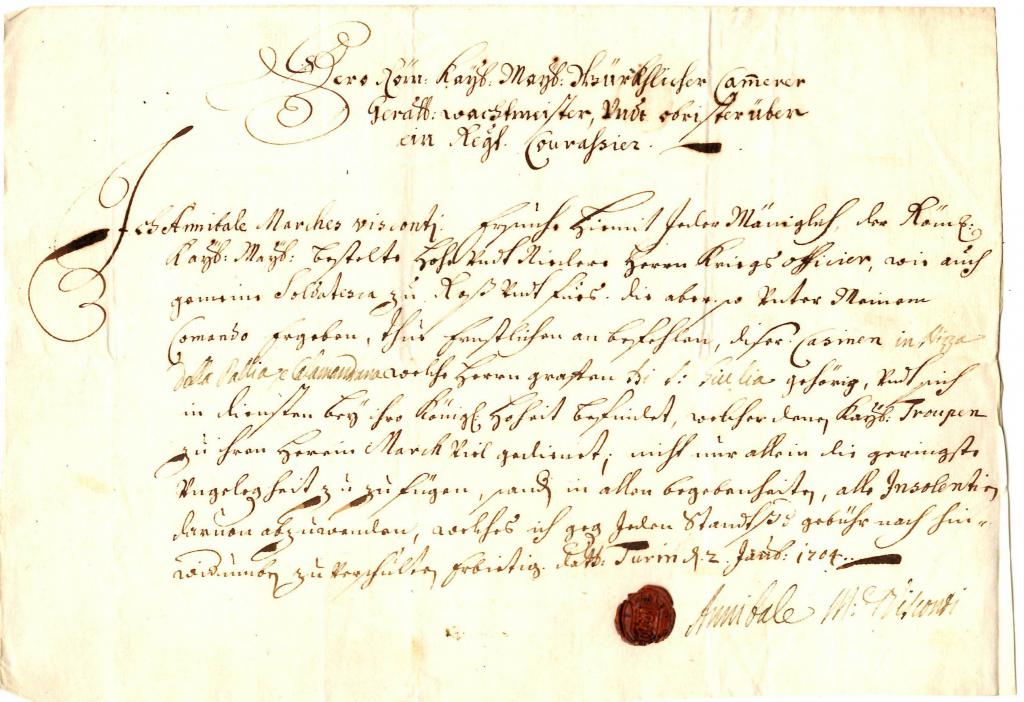 Dero Röm: Kayß: Mayß: Würkhlicher Cam̅erer
Generall: wachtmeister, Undt obrister über
ein Regt. Courassier.
Ich Annibale Marches Visconti. Ersuche hiemit Jeder Mäniglich, der Röm:
Kayß: Mayß: bestelte hohe Undt Nidere Herrn Kriegs officier, wie auch
gemeine Soldatisca zu Roß Undt fues. die aber so Unter Meinem
Comando Ergeben, thue Ernstlichen an befehlen, diser Casinen in Nizza
della Paglia e welche Herrn graffen di S: Giulia gehörig, Undt sich
in diensten bey ihro Königl: Hoheit befindet, welcher denen Kayß: Troupen
zu ihren herein March Viel gedienet; nicht nur allein die geringste
Ungelegheit zu zufügen, sondern in allen begebenheiten, alle Insolentien
daruon abzuwenden, welches ich geg Jeden Standts gebühr nach hin-
widerumben zu Verschulten Erbietig. datt: Turin d. 2. Janß: 1704.
Annibale M: Visconti